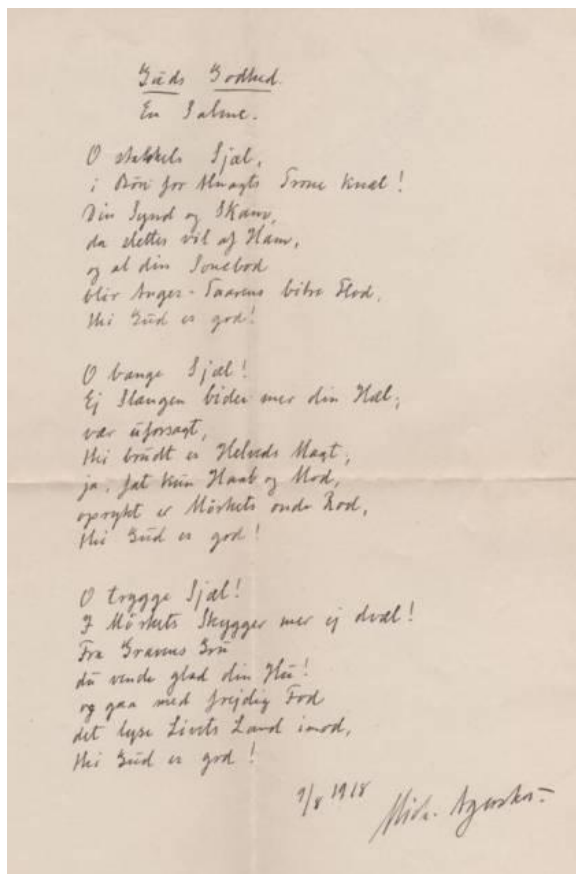 Guds Godhed.
En Salme.
O stakkels Sjæl,
i Bøn for Almagts Trone knæl!
Din Synd og Skam,
da slettes vil af Ham,
og al din Sonebod
blir Anger-Taarens bitre Flod,
thi Gud er god!
O bange Sjæl!
Ej Slangen bider mer din Hæl;
vær uforsagt,
thi brudt er Helveds Magt;
ja, fat kun Haab og Mod,
oprykt er Mørkets onde Rod,
thi Gud er god!
O trygge Sjæl!
I Mørkets Skygger mer ej dvæl!
Fra Gravens Gru
du vende glad din Hu!
og gaa med frejdig Fod
det lyse Livets Land imod,
thi Gud er god!
1/8 1918
Mich. Agerskov